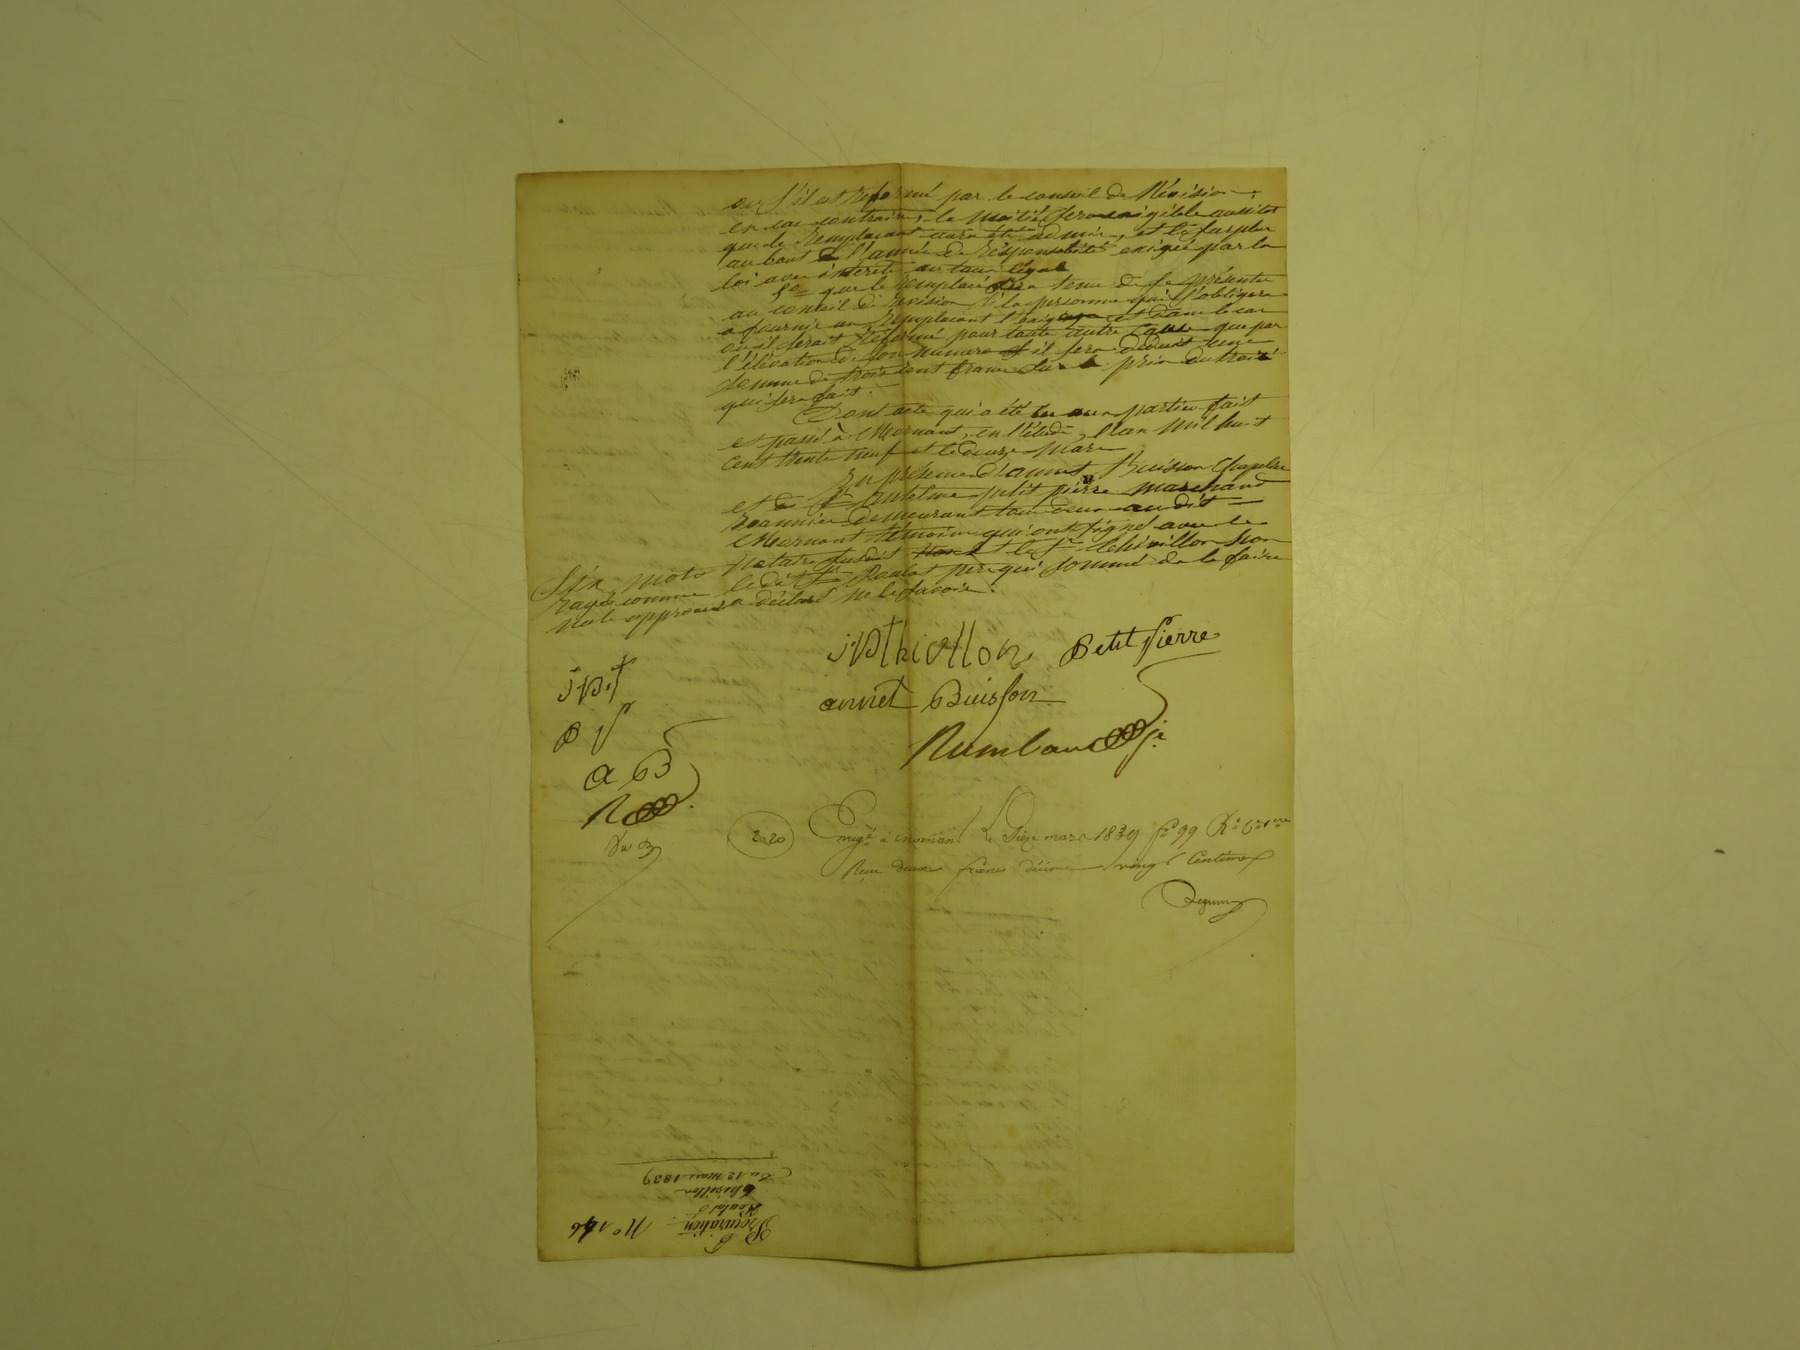 ou s'il est réformé par le conseil de Révision.
en cas contraire, la moitié sera exigible aussitot
que le remplacant aura été admis, et le surplus
au bout de l'année de responsabilité exigée par la
loi avec intérêt au taux légal
5o que le remplacé sera tenu de se présenter
au conseil de révision si la personne qui s'obligera
a fournir un remplacant l'exige et dans le cas
ou il serait réformé pour toute autre cause que par
l'élévation de son numero il sera déduit une
somme de trois cent francs sur le prix du traité
qui sera fait.
Dont acte qui a été lu aux parties fait
et passé à Mornant, en l'étude, l'an mil huit
cent trente neuf et le douze mars
En présence d'annet Buisson Chapelier
et de Sr anselme petit pierre marchand
demeurant tous deux audit
Mornant témoins qui ont signé avec le
notaire susdit et le Sr thivillon non
ledit Sr père qui sommé de le faire
a déclaré ne le savoir.
Six mots
rayés comme
nuls approuvés
petit pierre
annet Buisson
a B
2.20
à mornant Le mars 1839 fo 99
Reçu deux francs décime vingt Centimes
No 146
Procuration
thivillon
Du 12 mars 1839